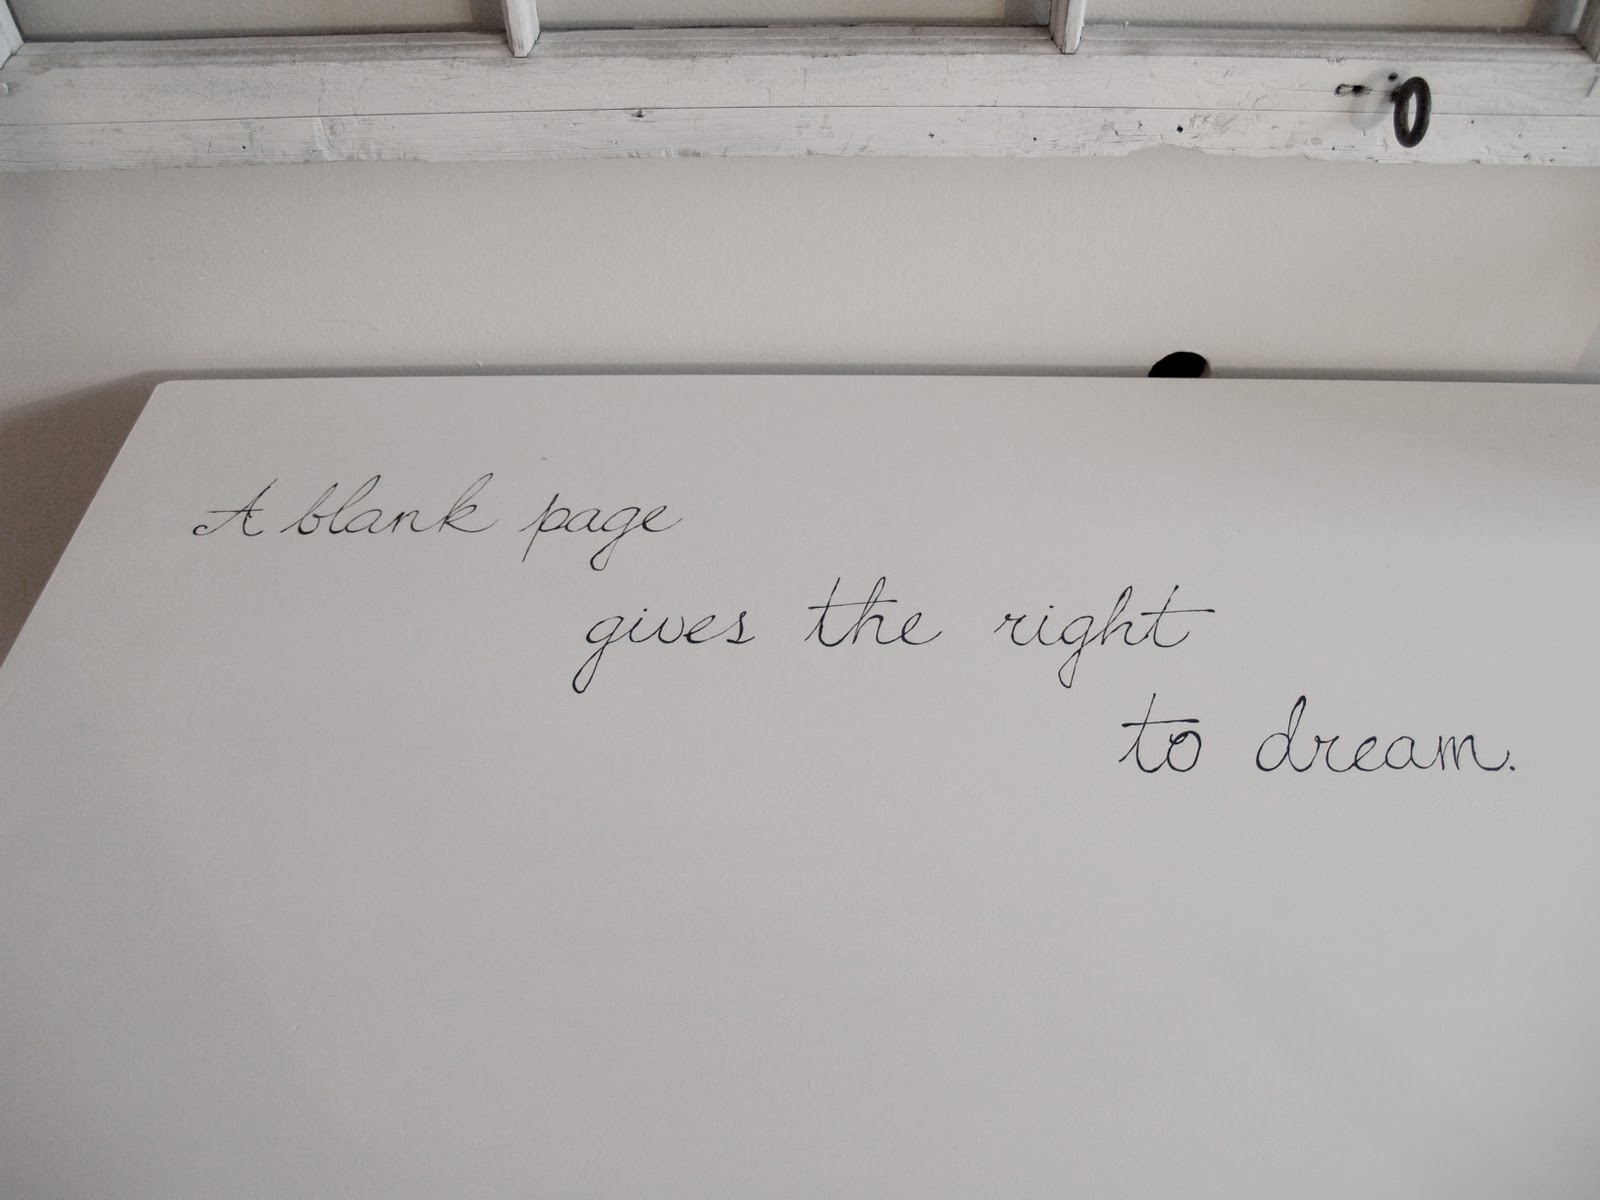 A blank page
gives the right
to dream.